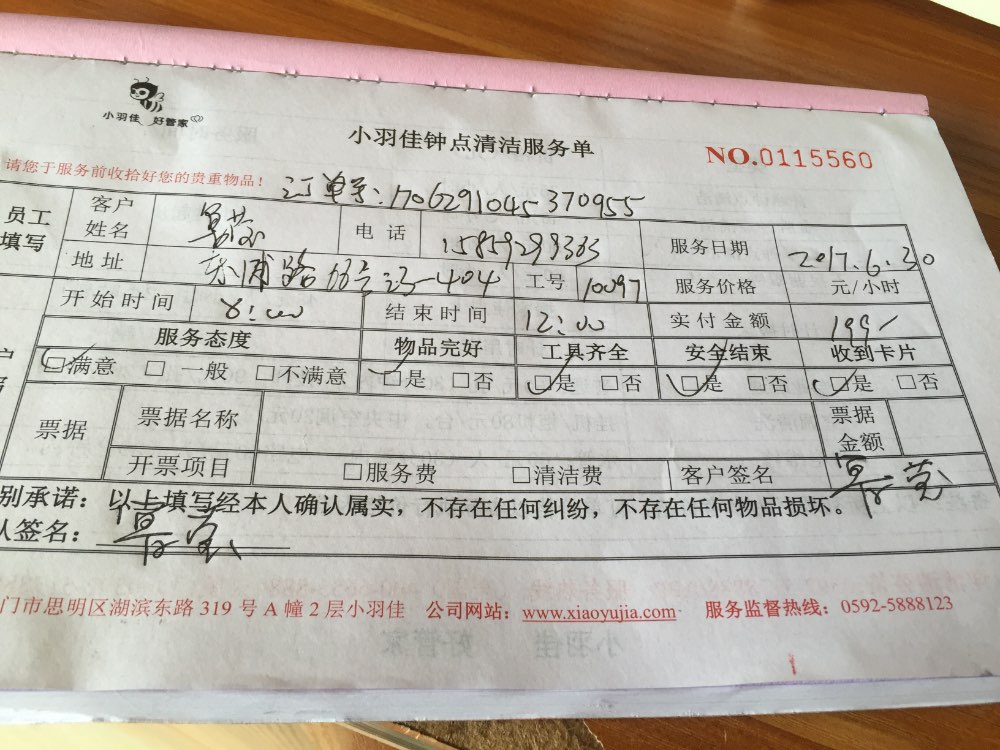 小羽佳 好管家
小羽佳钟点清洁服务单
NO.0115560
请您于服务前收拾好您的贵重物品！ 订单号：1706291045370955
员工填写 客户姓名 电话 15859299333 服务日期 2017.6.30
地址 工号 10097 服务价格 元/小时
开始时间 8:00 结束时间 12:00 实付金额 199
服务态度 物品完好 工具齐全 安全结束 收到卡片
☑满意 □一般 □不满意 ☑是 □否 ☑是 □否 ☑是 □否 ☑是 □否
票据 票据名称 票据金额
开票项目 □服务费 □清洁费 客户签名
别承诺：以上填写经本人确认属实，不存在任何纠纷，不存在任何物品损坏。
人签名：
门市思明区湖滨东路 319 号 A 幢 2 层小羽佳 公司网站：www.xiaoyujia.com 服务监督热线：0592-5888123